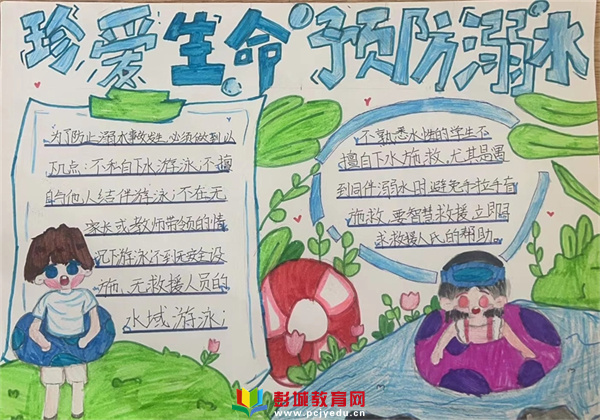 珍爱生命 预防溺水
为了防止溺水事故发生,必须做到以
下几点:不私自下水游泳;不擅
自与他人结伴游泳;不在无
家长或教师带领的情
况下游泳;不到无安全设
施、无救援人员的
水域游泳;
不熟悉水性的学生不
擅自下水施救,尤其是遇
到同伴溺水时避免手拉手盲
施救,要智慧救援,立即寻
求救援人民的帮助。
彭城教育网
www.pcjyedu.cn